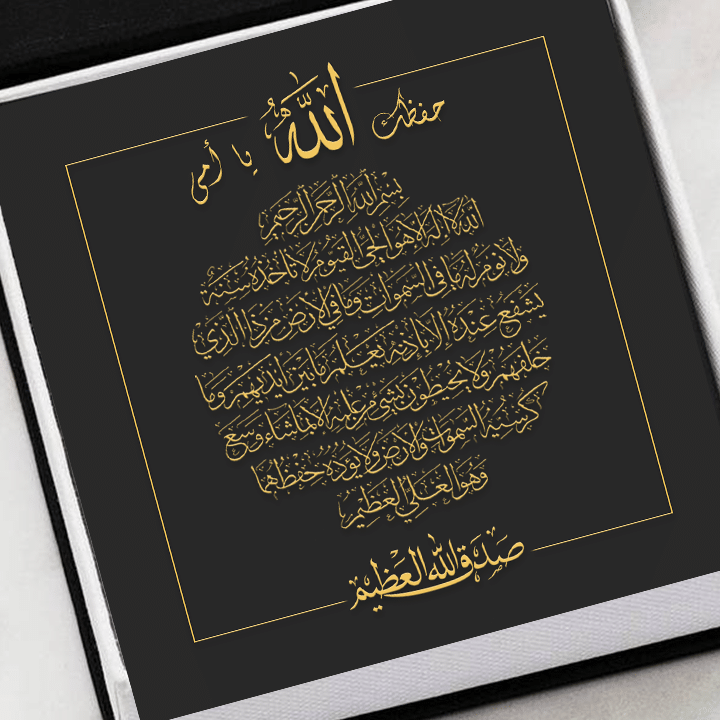 حفظك الله يا أمي
بسم الله الرحمن الرحيم
الله لا إله إلا هو الحي القيوم لا تأخذه سنة
ولا نوم له ما في السموات وما في الأرض من ذا الذي
يشفع عنده إلا بإذنه يعلم ما بين أيديهم وما
خلفهم ولا يحيطون بشيء من علمه إلا بما شاء وسع
كرسيه السموات والأرض ولا يؤده حفظهما
وهو العلي العظيم
صدق الله العظيم